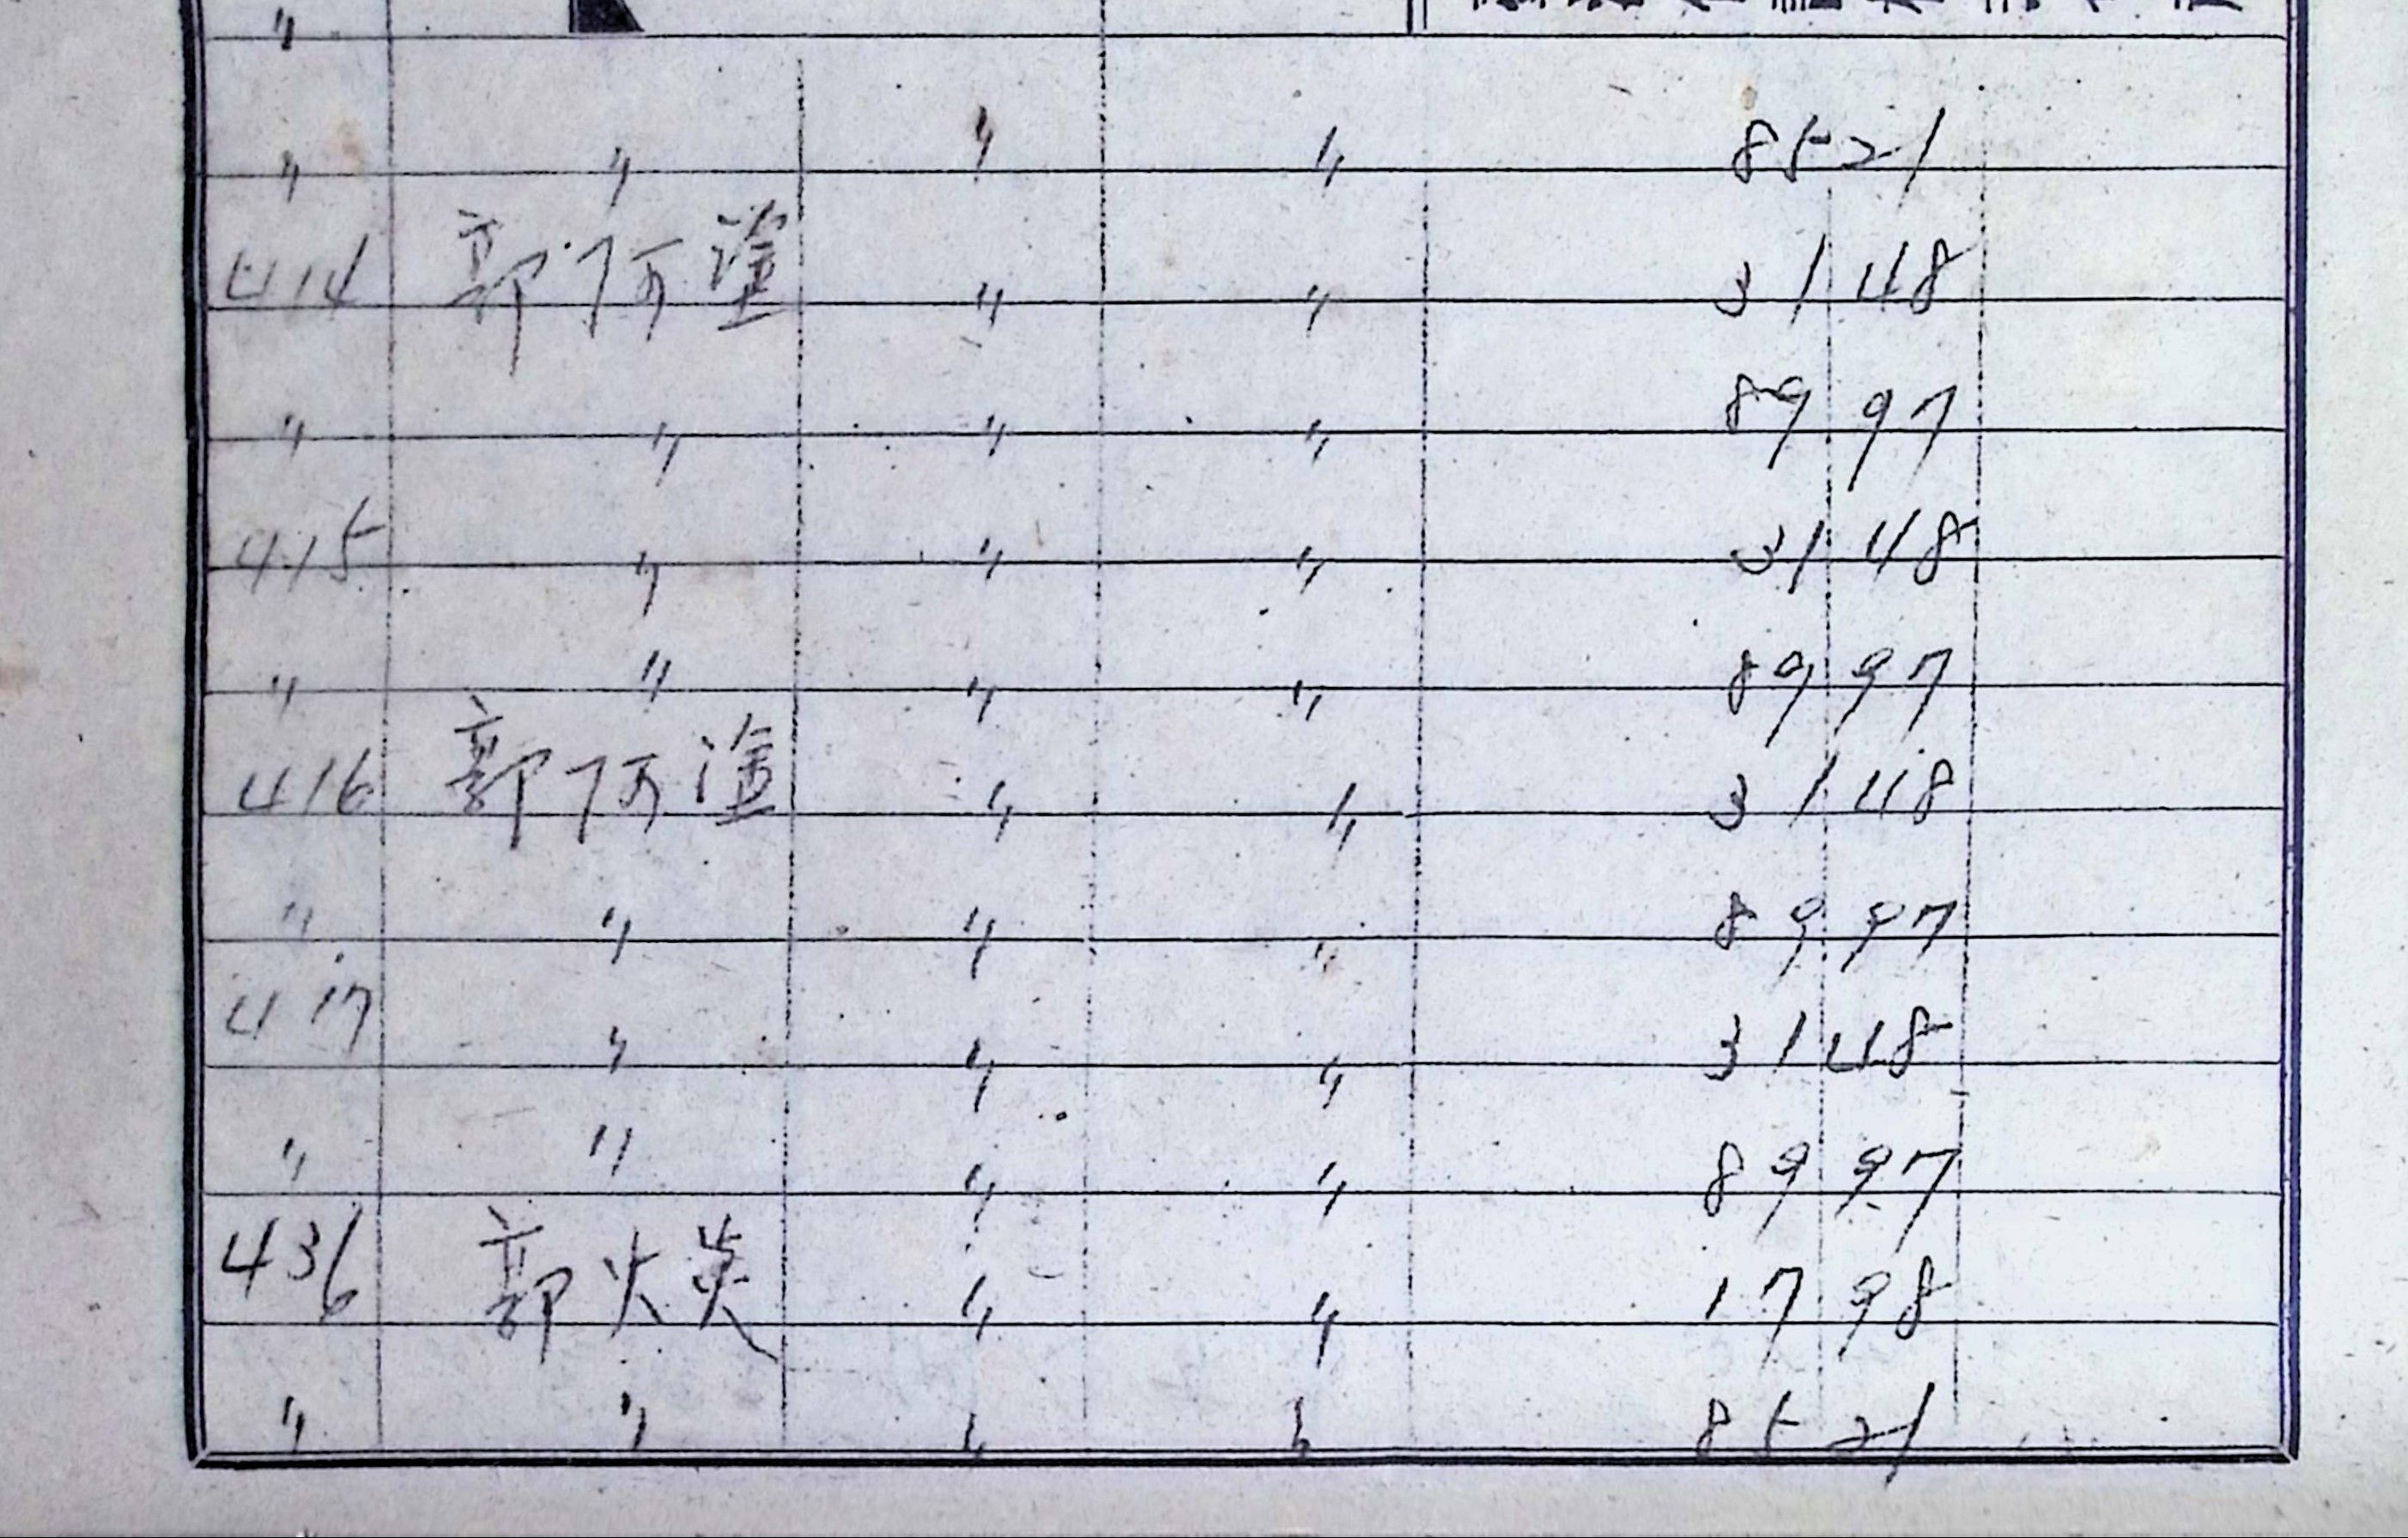 〃
〃 〃 〃 〃 8521
414 郭阿塗 〃 〃 3148
〃 〃 〃 〃 8997
415 〃 〃 〃 3148
〃 〃 〃 〃 8997
416 郭阿塗 〃 〃 3148
〃 〃 〃 〃 8997
417 〃 〃 〃 3148
〃 〃 〃 〃 8997
436 郭火炎 〃 〃 1798
〃 〃 〃 〃 8521